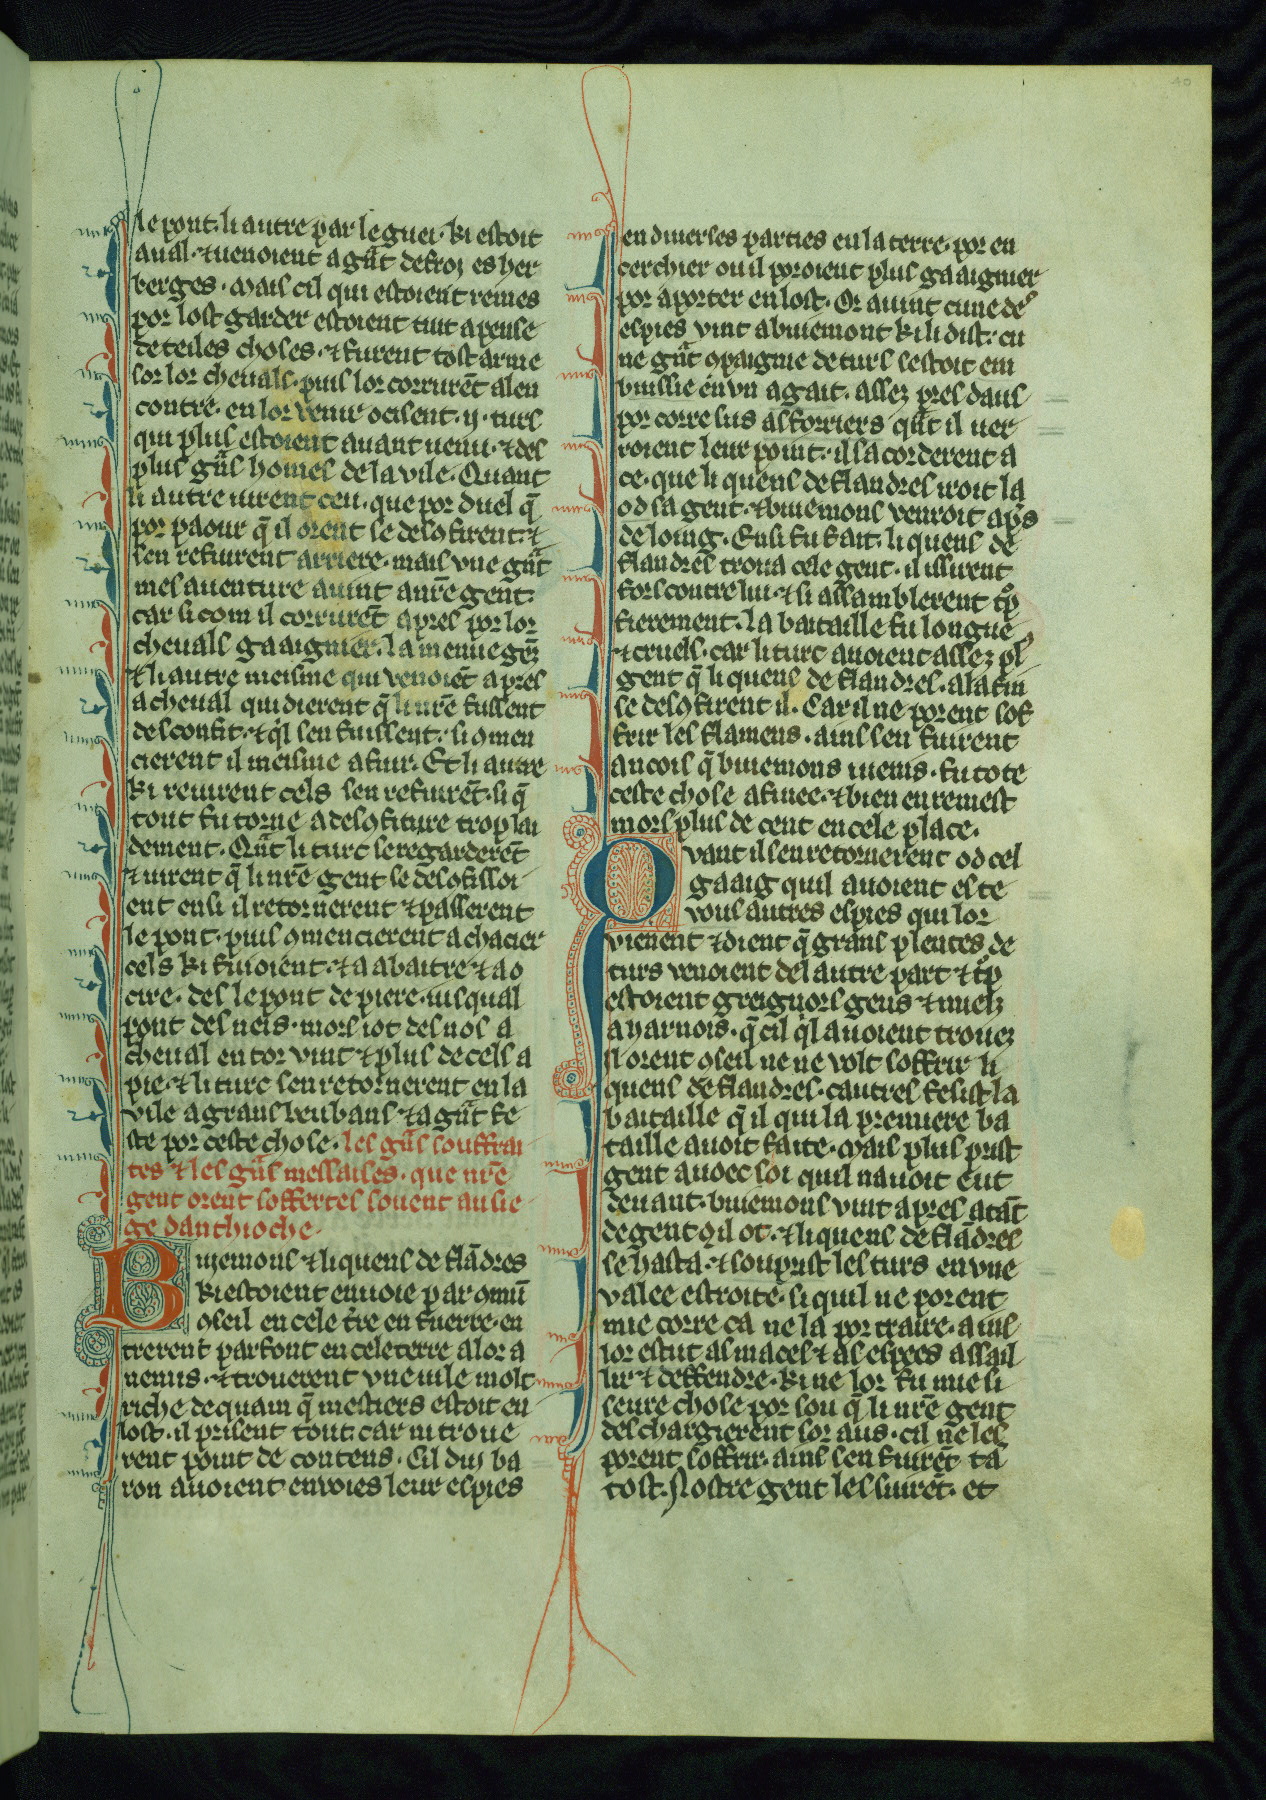 le pont. li autre par le guei. ki estoit
aual. ⁊ uenoient a gñt desroi es her
berges. Mais cil qui estoient remes
por lost garder estoient tuit apense
de teiles choses. ⁊ furent tost arme
sor lor cheuals. puis lor corrurẽt a len
contre. en lor venir ocisent .ij. turs
qui plus estoient auant uenu. ⁊ des
plus gñs homes de la vile. Quant
li autre uirent ceu. que por duel q̃
por paour q̃ il orent se desꝯfirent. ⁊
sen refuirent arriere. mais vne gñt
mesauenture auint a nr̃e gent.
car si com il corrurẽt apres por lor
cheuals gaaignier. la menue gẽt
⁊ li autre meisme qui venoiẽt apres
a cheual quidierent q̃ li nr̃e fussent
desconfit. ⁊ q̃l sen fuissent. si ꝯmen
cierent il meisme a fuir. Et li autre
ki reuirent cels sen refuirẽt. si q̃
tout fu torne a desꝯfiture trop lai
dement. Qñt li turc se regarderẽt
⁊ uirent q̃ li nr̃e gent se desꝯfissoi
ent ensi il retornerent ⁊ passerent
le pont. puis ꝯmencierent a chacier
cels ki fuioient. ⁊ a abaitre ⁊ a o
cire. des le pont de piere. iusqual
pont des neis. mors iot des nos a
cheual entor vint ⁊ plus de cels a
pie. ⁊ li turc sen retornerent en la
vile a grans beubans ⁊ a gñt fe
ste por ceste chose. les gñs souffrai
tes ⁊ les gñs mesaises. que nr̃e
gent orent soffertes souent au sie
ge danthioche.
Buiemons ⁊ li quens de flãdres
ki estoient enuoie par ꝯmũ
ꝯseil en cele tr̃e en fuerre. en
trerent parfont en cele terre a lor a
nemis. ⁊ trouerent vne uile molt
riche de quam q̃ mestiers estoit en
lost. il prisent tout. car ni troue
rent point de contens. Cil dui ba
ron auoient enuoies leur espies
en diuerses parties en la terre. por en
cerchier ou il poroient plus gaaignier
por aporter en lost. Or auint cune des
espies vint a buiemont ki li dist. cu
ne gñt ꝯpaignie de turs sestoit em
buissie en vn agait. assez pres daus
por corre sus as forriers qñt il uer
roient leur point. il sacorderent a
ce. que li quens de flandres iroit la
od sa gent. ⁊ buiemons venroit ap̃s
de loing. Ensi fu fait. li quens de
flandres troua cele gent. il issirent
fors contre lui. ⁊ si assamblerent tp̃
fierement. la bataille fu longue
⁊ cruels. car li turc auoient assez pl
gent q̃ li quens de flandres. a la fin
se desꝯfirent il. Car il ne porent sof
frir les flamens. ains sen fuirent
ancois q̃ buiemons uenis. fu tote
ceste chose afinee. ⁊ bien en remest
mors plus de cent en cele place.
Quant il sen retornerent od cel
gaaig quil auoient es te
vous autres espies qui lor
vienent ⁊ dient q̃ grans plentes de
turs venoient del autre part ⁊ tp̃
estoient greignors gens ⁊ mielz
a harnois. q̃ cil q̃l auoient trouez
Il orent ꝯseil ne ne volt soffrir li
quens de flandres. cautres fesist la
bataille q̃ il qui la premiere ba
taille auoit faite. Mais plus prist
gent auoec soi quil nauoit eut
deuant. buiemons vint apres a tãt
de gent q̃ il ot. ⁊ li quens de flãdres
se hasta. ⁊ souprist les turs en vne
valee estroite. si quil ne porent
mie corre ca ne la por traire. ains
lor estut as maces ⁊ as espees assail
lir ⁊ deffendre. ki ne lor fu mie si
seure chose por sou q̃ li nr̃e gent
deschargierent sor aus. cil ne les
porent soffrir. ains sen fuirẽt ta
tost. Nostre gent les suirẽt. et